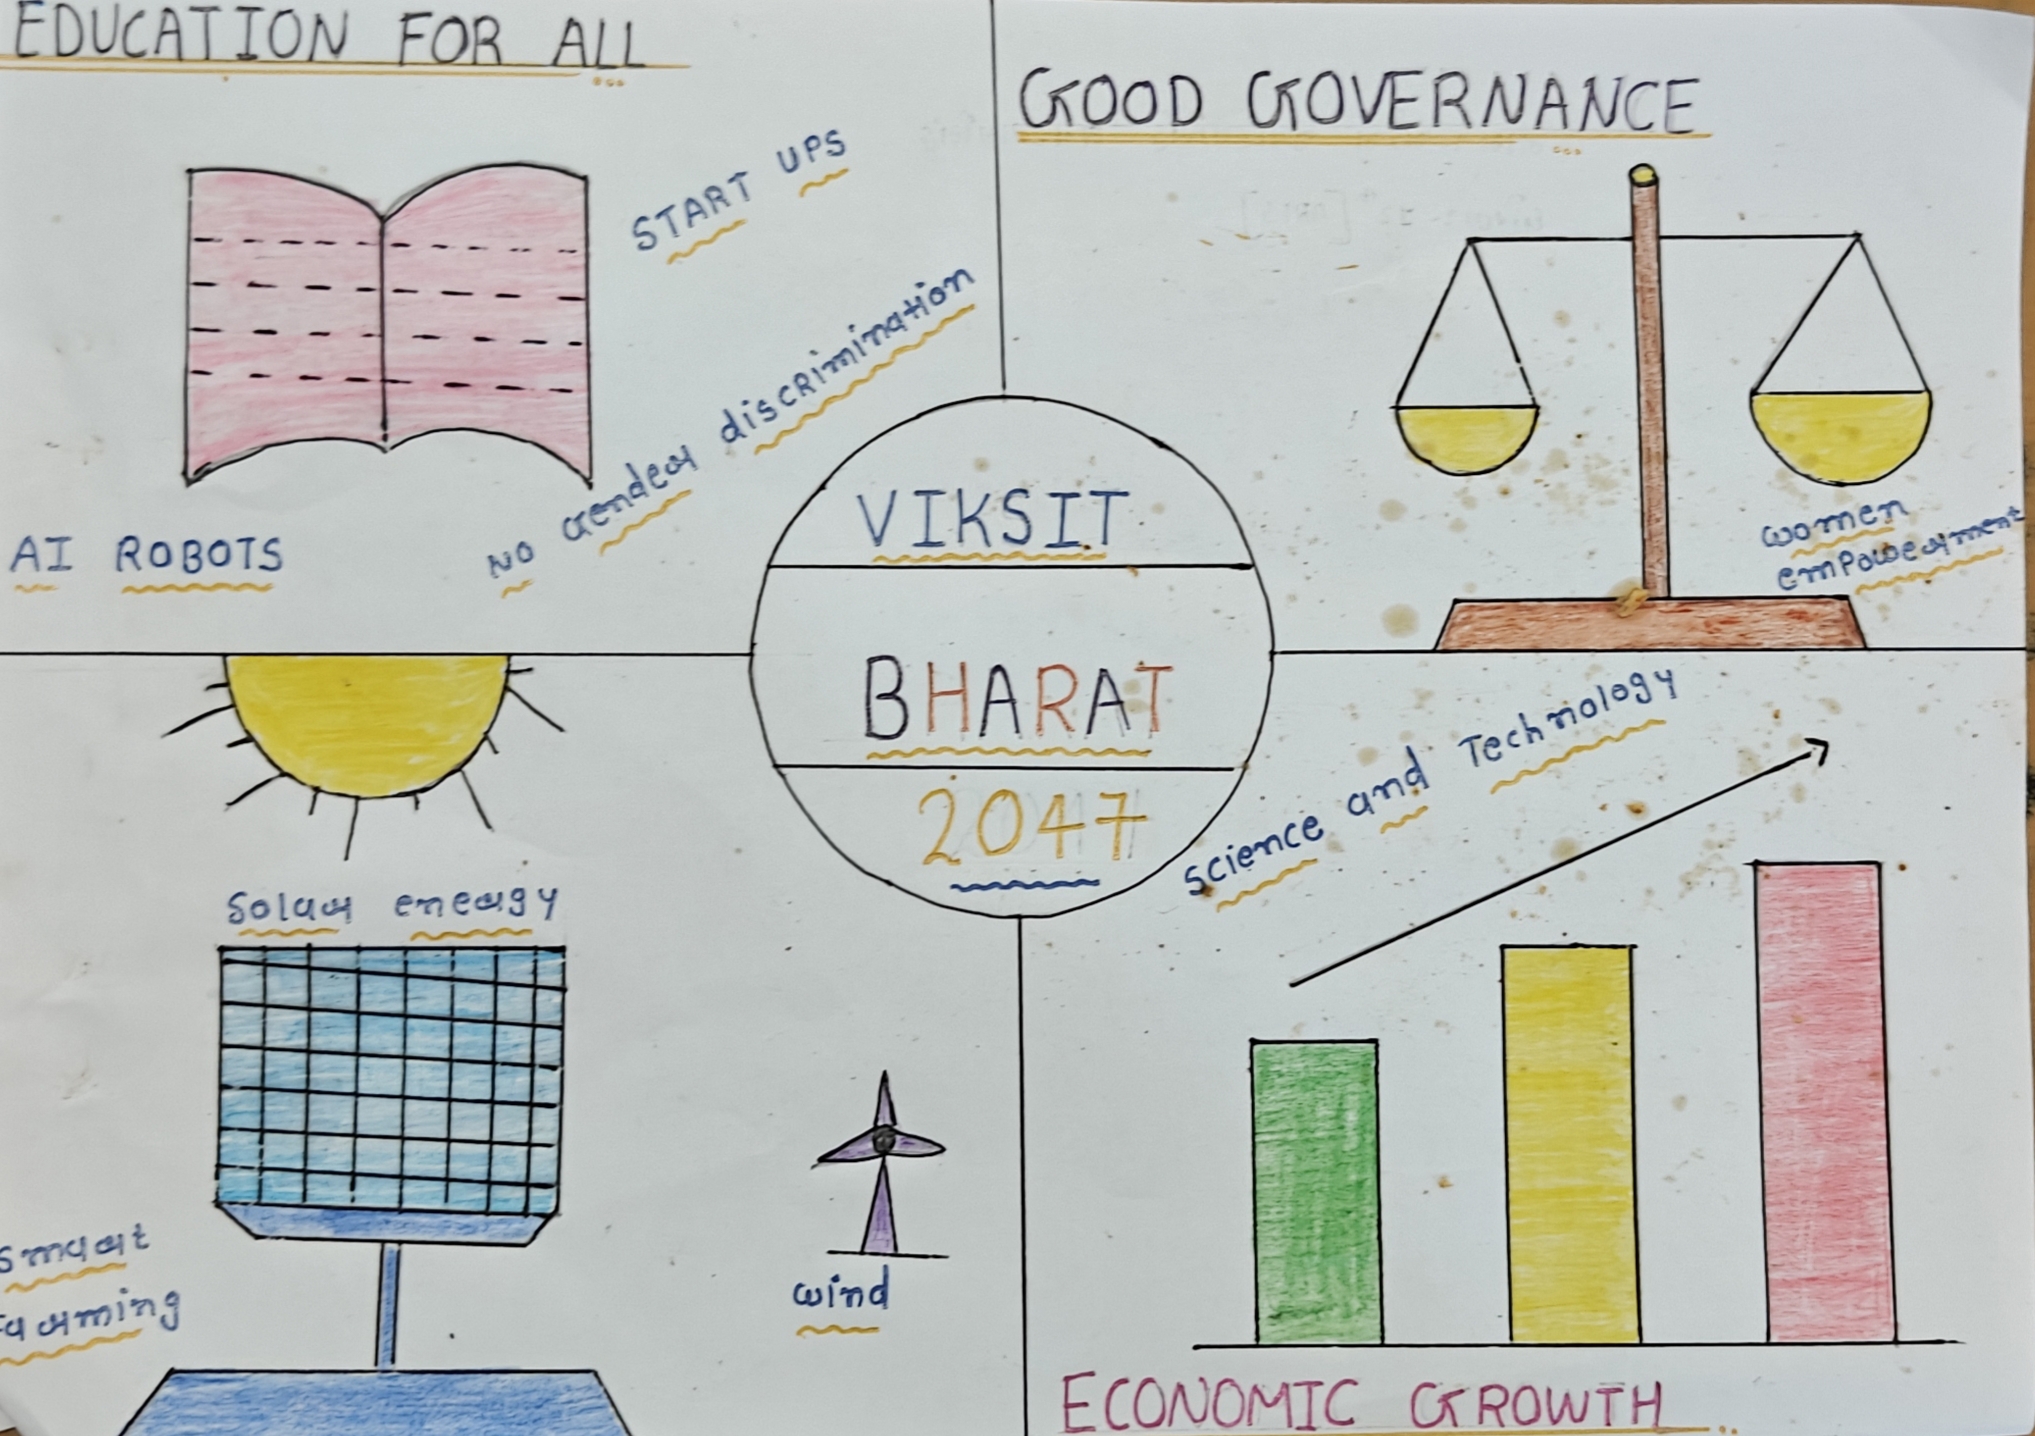 EDUCATION FOR ALL
START UPS
NO Gender discrimination
AI ROBOTS
GOOD GOVERNANCE
women
empowerment
VIKSIT
BHARAT
2047
Solar energy
Smart
Farming
wind
Science and Technology
ECONOMIC GROWTH